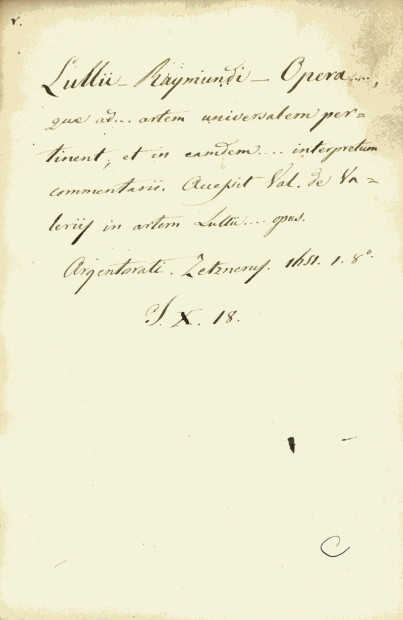 v.
Lullii – Raÿmundi – Opera....,
quæ ad... artem universalem per=
tinent, et in eamdem.... interpretum
commentarii. Accessit Val. de Va=
leriis in artem Lullii.... opus.
Argentorati. Zetznerus. 1651. 1. 8º.
J. X. 18.
C